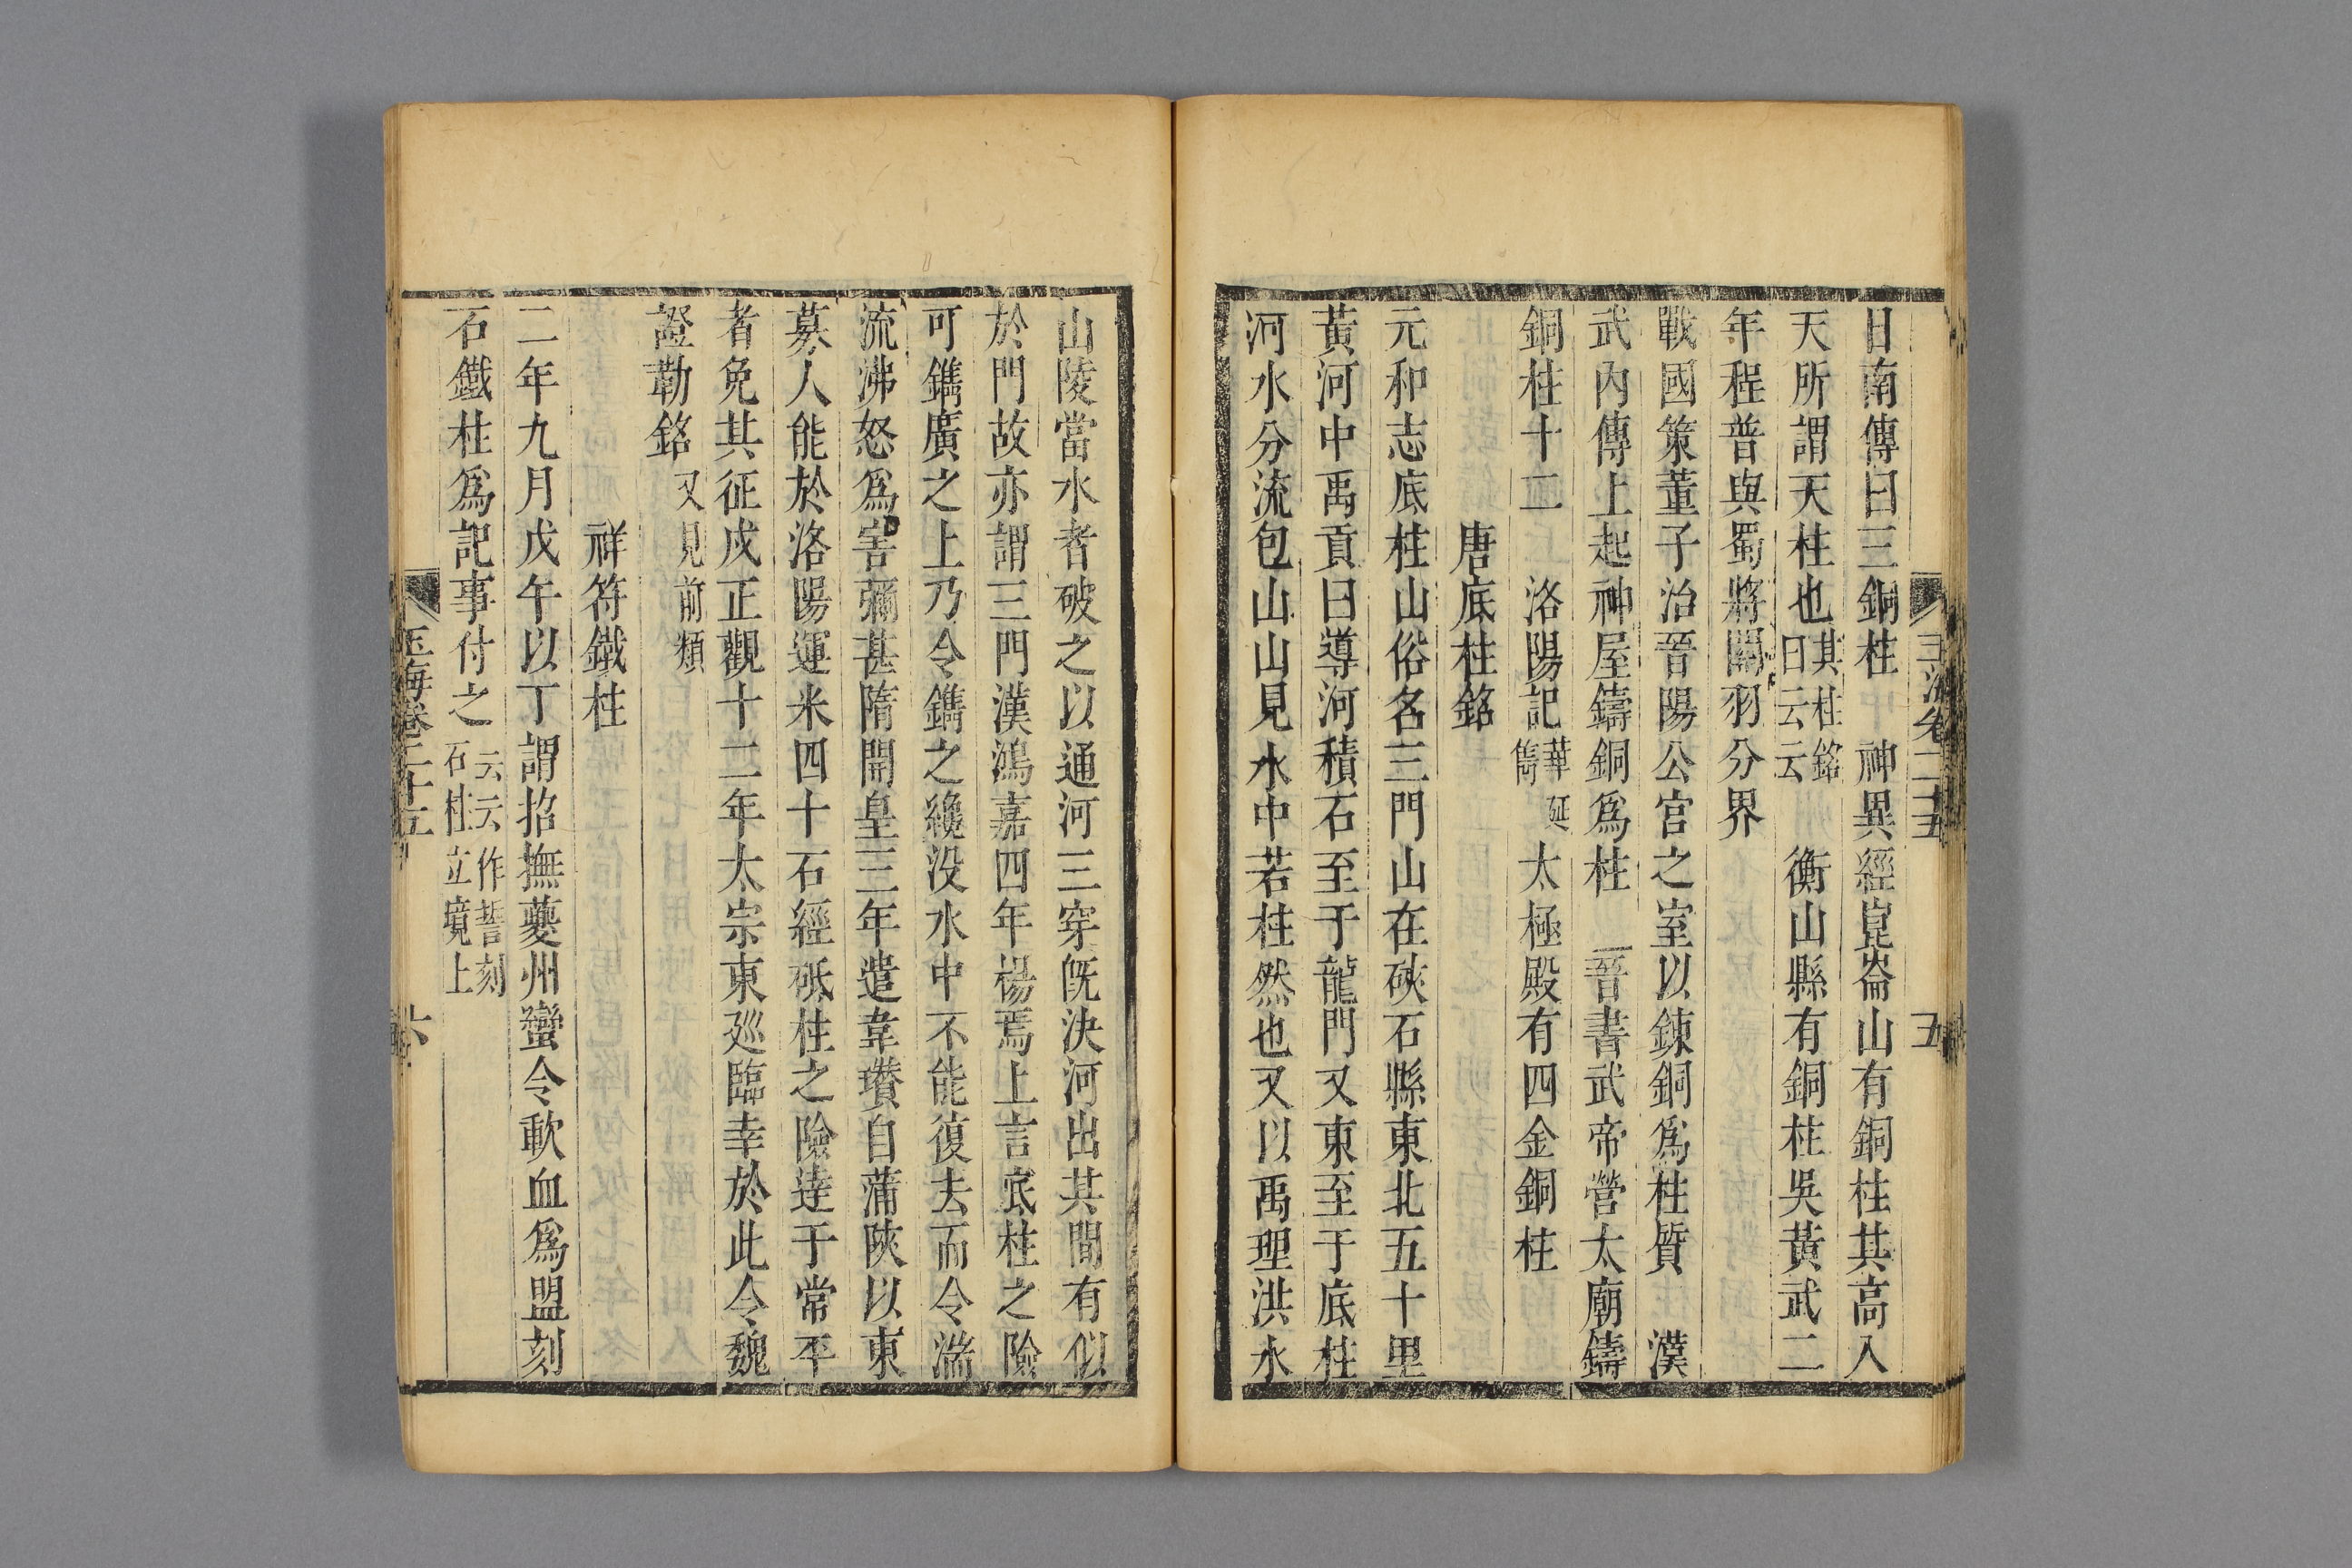 玉海卷二十五 五
日南傳曰三銅柱 神異經崑崙山有銅柱其高入
天所謂天柱也其柱銘曰云云 衡山縣有銅柱吳黃武二
年程普與蜀將關羽分界
戰國策董子治晉陽公宮之室以鍊銅爲柱質 漢
武內傳上起神屋鑄銅爲柱 晉書武帝營太廟鑄
銅柱十二 洛陽記華延儁 太極殿有四金銅柱
唐底柱銘
元和志底柱山俗名三門山在硤石縣東北五十里
黃河中禹貢曰導河積石至于龍門又東至于底柱
河水分流包山山見水中若柱然也又以禹理洪水
山陵當水者破之以通河三穿旣決河出其間有似
於門故亦謂三門漢鴻嘉四年楊焉上言底柱之險
可鐫廣之上乃令鐫之纔没水中不能復去而令湍
流沸怒爲害彌甚隋開皇三年遣韋瓚自蒲陝以東
募人能於洛陽運米四十石經砥柱之險達于常平
者免其征戍正觀十二年太宗東廵臨幸於此令魏
證勒銘又見前類
祥符鐵柱
二年九月戊午以丁謂招撫夔州蠻令歃血爲盟刻
石鐵柱爲記事付之云云作誓刻石柱立境上
玉海卷二十五 六